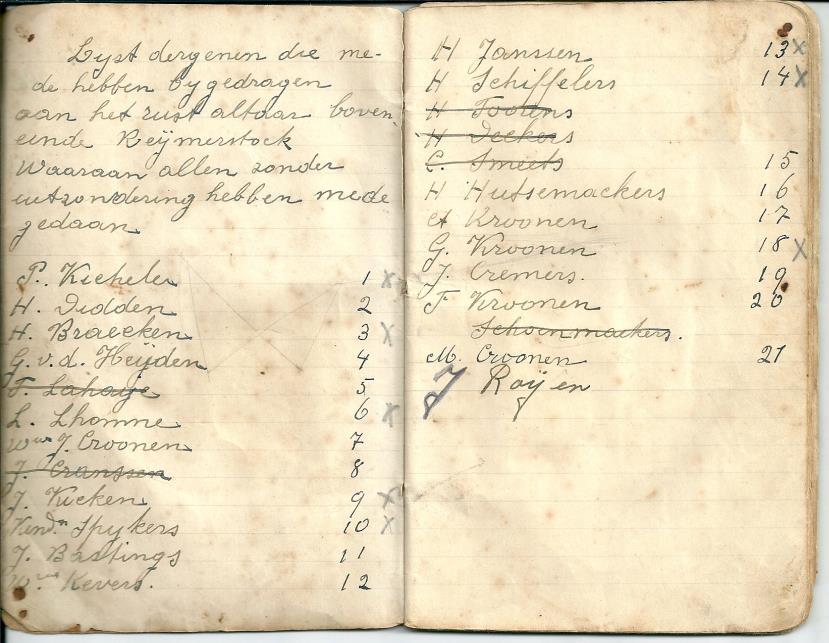 Lyst dergenen die me-
de hebben by gedragen
aan het rust altaar boven
einde Reÿmerstock
Waaraan allen zonder
uitzondering hebben mede
gedaan
P. Kicheler 1 x
H. Didden 2
H. Braecken 3 x
G. v. d. Heÿden 4
F. Lahaye 5
L. Lhomme 6 x
Wwe J. Croonen 7
J. Cranssen 8
J. Kicken 9 x
Kind.n Spykers 10 x
J. Bastings 11
Wwe Kevers. 12
H Janssen 13 x
H Schiffelers 14 x
H Toorens
H Deckers
C. Smeets 15
H Hutsemackers 16
A Kroonen 17
G. Kroonen 18 x
J. Cremers. 19
F Kroonen 20
Schoenmaekers.
M. Croonen 21
J Roÿen